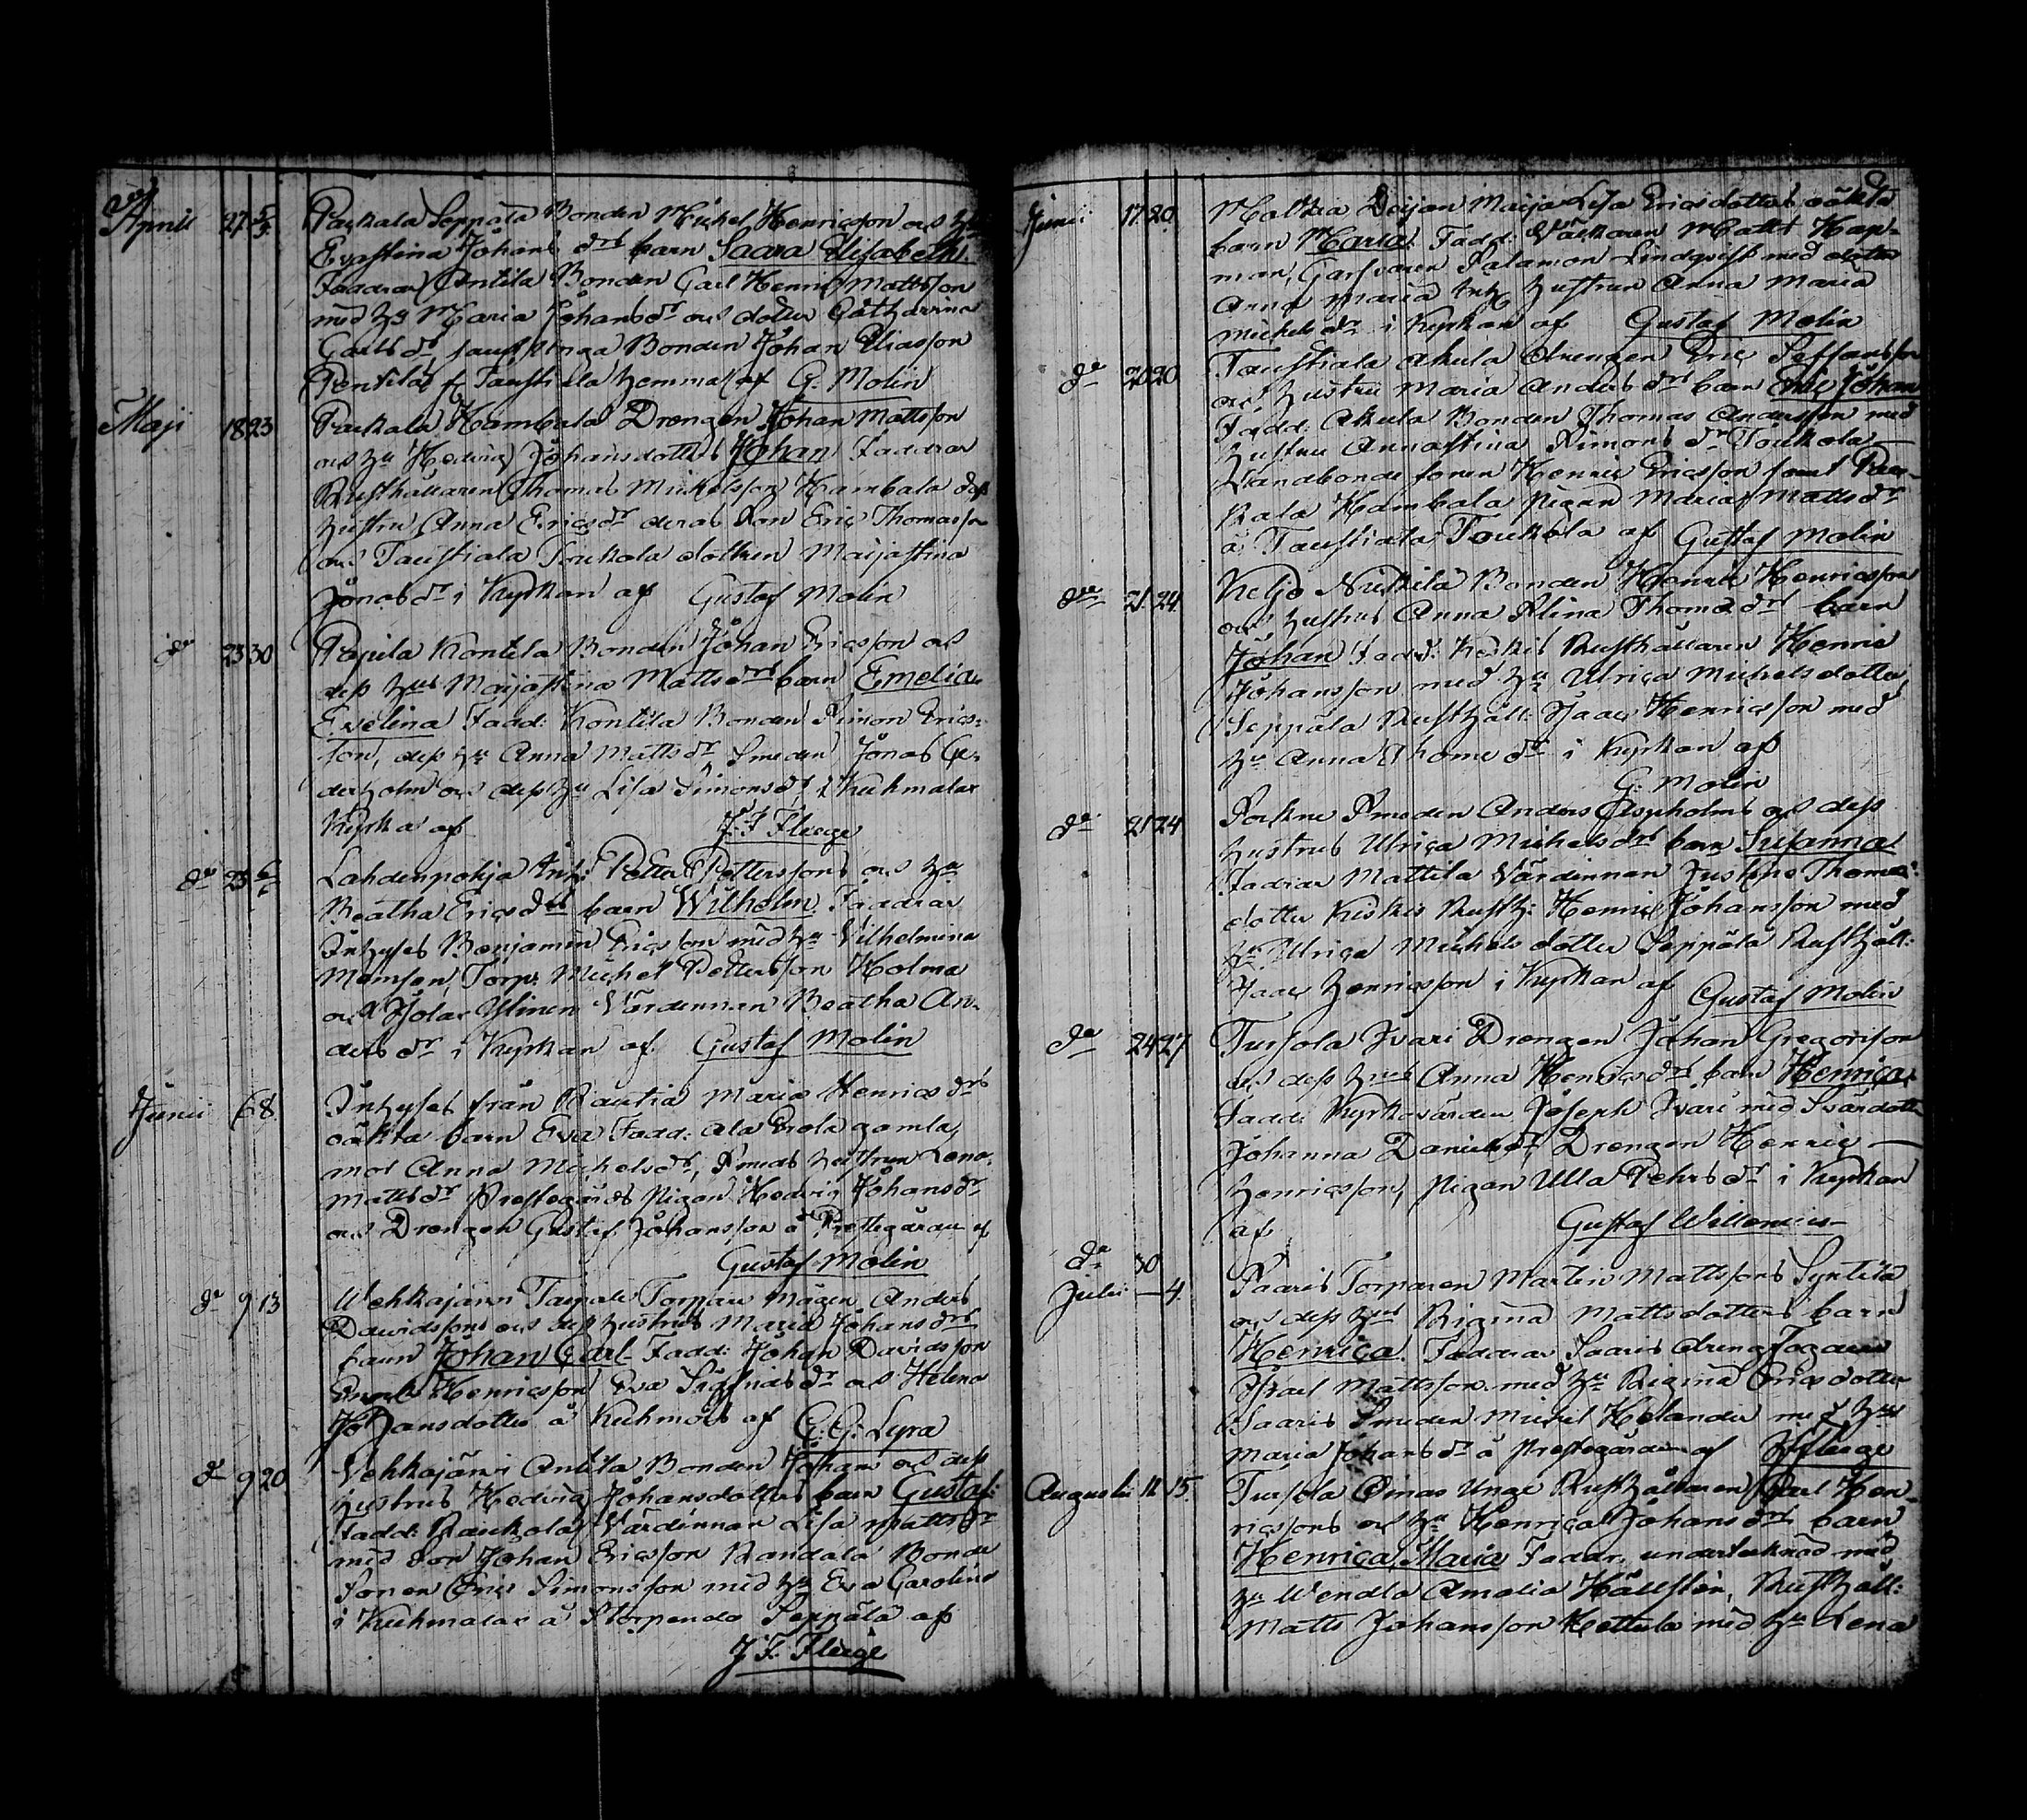 Aprill 27 5/5 Packala Seppälä Bonden Michel Henricsson och Hu
Evastina Johans drs barn Saara Elisabeth.
Faddrar Antila Bonden Carl Henric Mattsson
med Hu Maria Johansdr och dotter Catharina
Carlsdr, samt Bonden Johan Eliasson
Pentilä fr Taustiala hemma af G. Molin
Maji 18 23 Packala Hambala Drengen Johan Mattsson
och Hu Hedvig Johansdotters Johan Faddrar
Rusthållaren Thomas Mickelsson Hambala dess
hustru Anna Ericsdr deras Son Eric Thomasson
och Taustiala Toukola dottren Maijastina
Jonasdr i Kyrkan af Gustaf Molin
do 23 30 Pajula Kontila Bonden Johan Ericsson och
dess Hus Maijastina Mattsdrs barn Emelia
Evelina Fadd: Kontila Bonden Simon Erics-
son, dess Hu Anna Mattsdr Smeden Jonas Ce-
derholm och dess Hu Lisa Simonsdr i Kuhmalax
Kyrka af J. F. Fleege
do 23 6/6 Lahdenpohja Inh: Petter Petterssons och Hu
Beatha Ericsdrs barn Wilhelm. Faddrar
Inhyses Benjamin Ericsson med Hu Vilhelmina
Torp: Michel Pettersson Holma
och Ylinen Värdinnan Beatha An-
dersdr i Kyrkan af Gustaf Molin
Junii 6 8 Inhyses från Rautia Maria Henricsdrs
oäkta barn Eva Fadd: Ala Erola gamla
mor Anna Michelsdr, Smeds hustrun Lena
Mattsdr Prestegårds Pigan Hedvig Johansdr
och Drengen Gustaf Johansson å Prestegården af
Gustaf Molin
do 9 13 Wehkajärvi Taipale Torpare mågen Anders
Davidssons och dess hustrus Maria Johansdrs
barn Johan Carl Fadd: Johan Davidsson
Henricsson Eva Sigfridsdr och Helena
Johansdotter å Kuhmois af C. G. Lyra
do 9 20 Vehkajärvi Antila Bonden Johans och dess
hustrus Hedvig Johansdotters barn Gustaf:
Fadd: Raukola Värdinnan Lisa Mattsdr
med Son Johan Ericsson Randala Bonde
Sonen Eric Simonsson med Hu Eva Carolina
i Kuhmalax å Storpendo Seppälä af
J. F. Fleege
Junii 17 20 Pigan Maija Lisa Ericsdotters oäkta
barn Maria. Fadd: Matts Hap-
man, Garfvaren Salamon Lindqvist med dotter
Anna Maria Inh hustrun Anna Maria
Michelsdr i Kyrkan af Gustaf Molin
do 20 20 Taustiala Akula drengen Eric Steffansson
och hustru Maria Andersdrs barn Eric Johan
Fadd: Akula Bonden Thomas Andersson med
hustru Annastina Simons dr Toukola
Landbonde sonen Henric Ericsson samt Pac-
kala Hambala pigan Maria Mattsdr
å Taustiala Toukola af Gustaf Molin
do 21 24 Keljo Nickilä Bonden Henric Henricsson
och hustrus Anna Stina Thomædrs barn
Johan Fadd: Rusthållaren Henric
Johansson med Hu Ulrica Michelsdotter,
Seppälä Rusthåll: Isaac Henricsson med
Hu Anna Thomædr i Kyrkan af
G. Molin
do 21 24 Smeden Anders Aspholms och dess
hustrus Ulrica Michelsdrs barn Susanna
Faddrar Mattila Värdinnan Justina Thomæ-
dotter Rusth: Henric Johansson med
Hu Ulrica Michelsdotter Seppälä Rusthåll:
Isaac Henricsson i Kyrkan af Gustaf Molin
do 24 27 Tursola Ivari Drengen Johan Gregorisson
och dess Hus Anna Henricsdrs barn Henrica
Fadd: Kyrkovärden Joseph Ivari med Svärdotter
Johanna Danielsdr Drengen Henric
Henricsson, Pigan Ulla Pehrsdr i Kyrkan
af Gustaf Wellenius
do 30
Julii — 4 Saaris Torparen Martin Mattssons Syrtilä
och dess Hus Regina Mattsdotters barn
Henrica. Faddrar Saaris drengfogden
Israel Mattsson med Hu Regina Ericsdotter
Saaris Smeden Michel Helander med Hu
Maria Johansdr å Prestegården af J F Fleege
Augusti 11 15 Tursola Oinas Unge Rusthållaren Carl Hen-
ricssons och Hu Henrica Johansdrs barn
Henrica Maria Faddr. undertecknad med
Hu Wendla Amalia Hällsten, Rusthåll:
Matts Johansson Kettula med Hu Lena